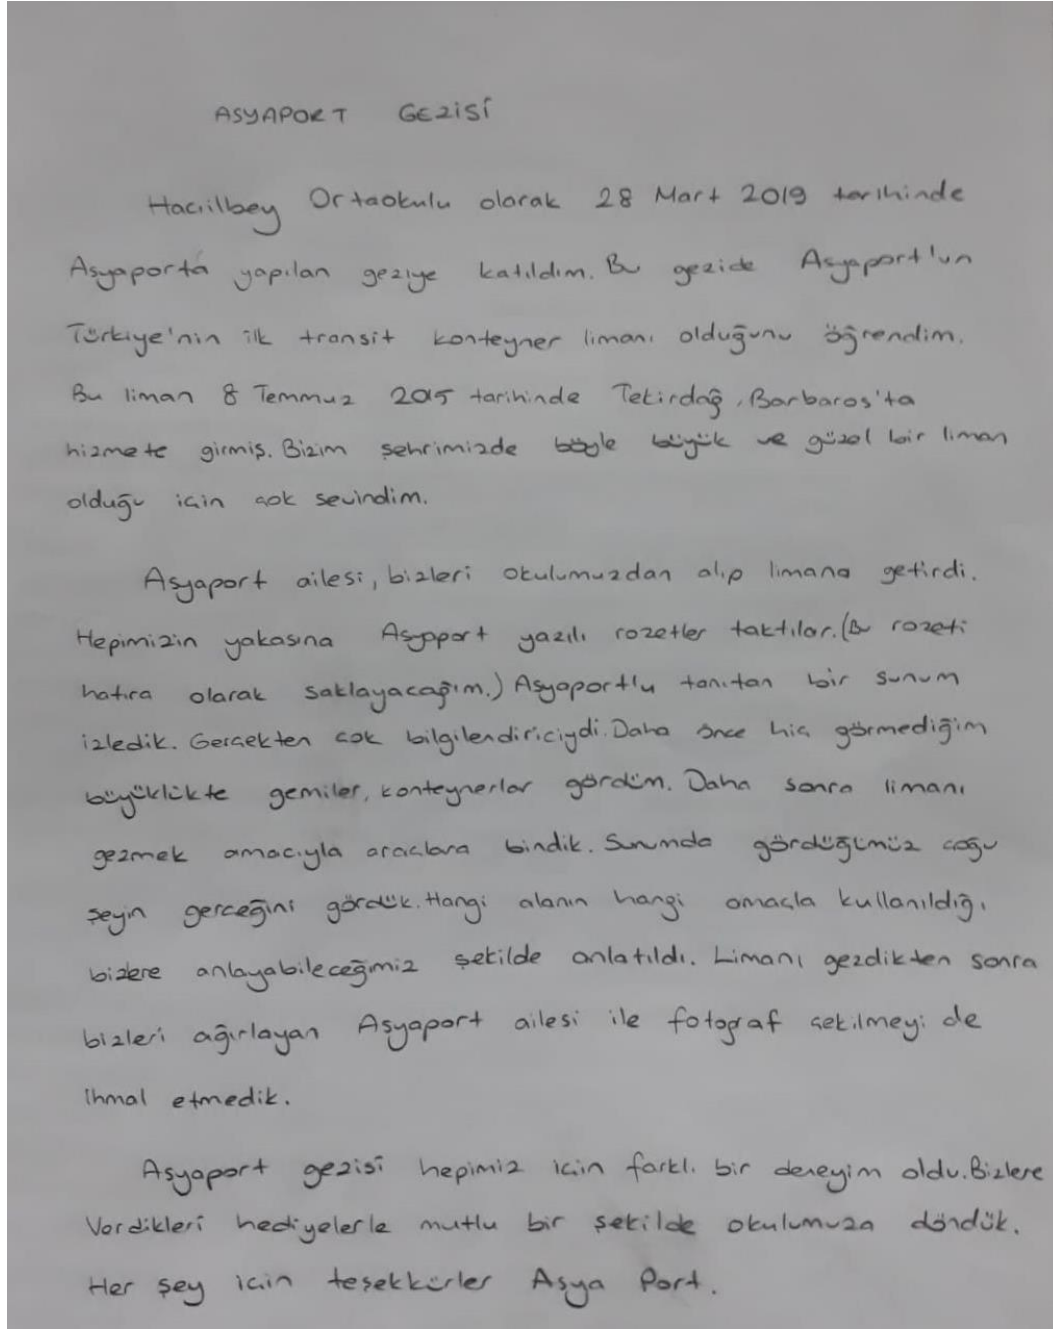 ASYAPORT GEZİSİ
Hacıilbey Ortaokulu olarak 28 Mart 2019 tarihinde
Asyaporta yapılan geziye katıldım. Bu gezide Asyaport'un
Türkiye'nin ilk transit konteyner limanı olduğunu öğrendim.
Bu liman 8 Temmuz 2015 tarihinde Tekirdağ, Barbaros'ta
hizmete girmiş. Bizim şehrimizde böyle büyük ve güzel bir liman
olduğu için çok sevindim.
Asyaport ailesi, bizleri okulumuzdan alıp limana getirdi.
Hepimizin yakasına Asyaport yazılı rozetler taktılar. (Bu rozeti
hatıra olarak saklayacağım.) Asyaport'u tanıtan bir sunum
izledik. Gerçekten çok bilgilendiriciydi. Daha önce hiç görmediğim
büyüklükte gemiler, konteynerlar gördüm. Daha sonra limanı
gezmek amacıyla araçlara bindik. Sunumda gördüğümüz çoğu
şeyin gerçeğini gördük. Hangi alanın hangi amaçla kullanıldığı
bizlere anlayabileceğimiz şekilde anlatıldı. Limanı gezdikten sonra
bizleri ağırlayan Asyaport ailesi ile fotograf çekilmeyi de
ihmal etmedik.
Asyaport gezisi hepimiz için farklı bir deneyim oldu. Bizlere
Verdikleri hediyelerle mutlu bir şekilde okulumuza döndük.
Her şey için teşekkürler Asya Port.